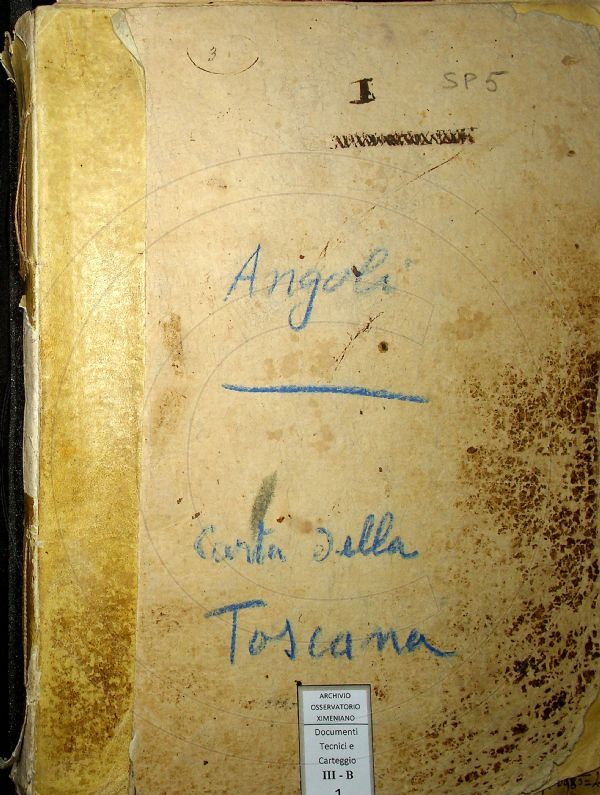 3
I
SP5
Angoli
Carta della
Toscana
ARCHIVIO
OSSERVATORIO
XIMENIANO
Documenti
Tecnici e
Carteggio
III - B
1